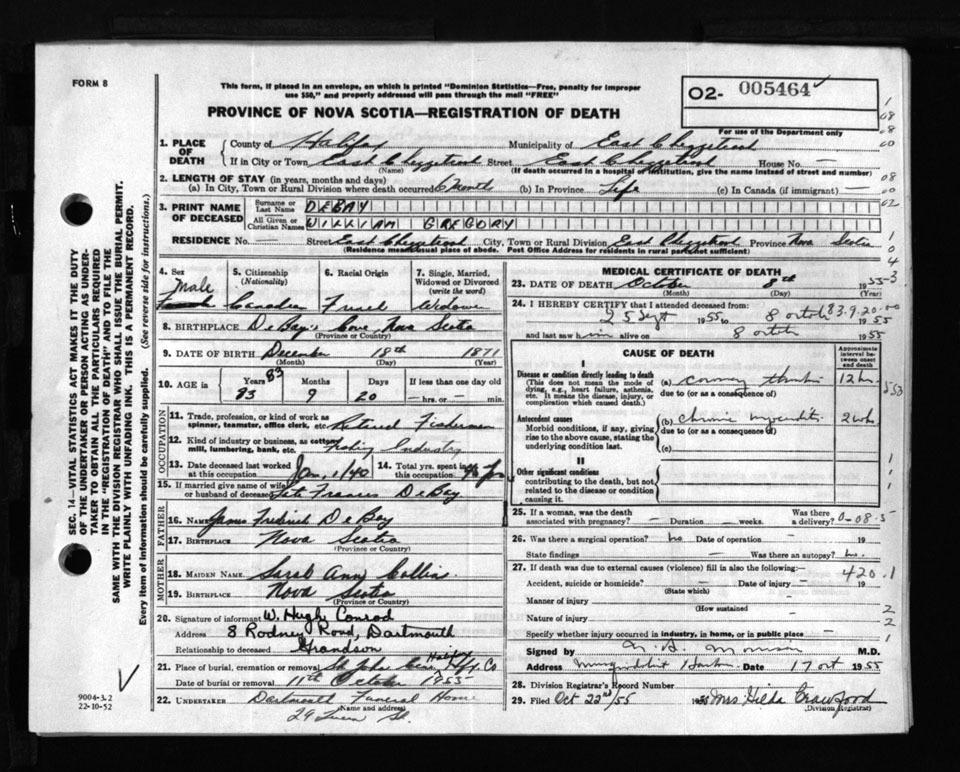 FORM 8
This form, if placed in an envelope, on which is printed "Dominion Statistics—Free, penalty for improper
use $50," and properly addressed will pass through the mail "FREE"
O2- 005464
For use of the Department only
PROVINCE OF NOVA SCOTIA—REGISTRATION OF DEATH
1. PLACE OF DEATH
County of Halifax Municipality of East Chezzetcook
If in City or Town East Chezzetcook Street East Chezzetcook House No. —
(Name) (If death occurred in a hospital or institution, give the name instead of street and number)
2. LENGTH OF STAY (in years, months and days)
(a) In City, Town or Rural Division where death occurred 6 Month (b) In Province Life (c) In Canada (if immigrant) —
3. PRINT NAME OF DECEASED
Surname or Last Name DEBAY
All Given or Christian Names WILLIAM GREGORY
RESIDENCE No. — Street East Chezzetcook City, Town or Rural Division East Chezzetcook Province Nova Scotia
(Residence means usual place of abode. Post Office Address for residents in rural parts not sufficient)
4. Sex Male
5. Citizenship (Nationality) Canadian
6. Racial Origin French
7. Single, Married, Widowed or Divorced (write the word) Widower
8. BIRTHPLACE DeBay's Cove Nova Scotia
(Province or Country)
9. DATE OF BIRTH December 18th 1871
(Month) (Day) (Year)
10. AGE in Years 83 Months 9 Days 20 If less than one day old — hrs. or — min.
83
OCCUPATION
11. Trade, profession, or kind of work as spinner, teamster, office clerk, etc. Retired Fisherman
12. Kind of industry or business, as cotton mill, lumbering, bank, etc. Fishing Industry
13. Date deceased last worked at this occupation Jan, 1/40
14. Total yrs. spent in this occupation
15. If married give name of wife or husband of deceased Francis DeBay
FATHER
16. NAME James Frederick DeBay
17. BIRTHPLACE Nova Scotia
(Province or Country)
MOTHER
18. MAIDEN NAME Sarah Ann Collin
19. BIRTHPLACE Nova Scotia
(Province or Country)
20. Signature of informant W. Hugh Conrod
Address 8 Rodney Road, Dartmouth
Relationship to deceased Grandson
21. Place of burial, cremation or removal St John Halifax Co
Date of burial or removal 11th October 1955
22. UNDERTAKER Dartmouth Funeral Home
(Name and address)
29 Queen St.
MEDICAL CERTIFICATE OF DEATH
23. DATE OF DEATH October 8th 1955
(Month) (Day)
24. I HEREBY CERTIFY that I attended deceased from:
25 Sept 1955 to 8 octob 1955
and last saw him alive on 8 octob 1955
83.9.20
CAUSE OF DEATH
Approximate interval between onset and death
I
Disease or condition directly leading to death
(This does not mean the mode of dying, e.g., heart failure, asthenia, etc. It means the disease, injury, or complication which caused death.)
(a) coronary thrombi 12 hrs.
due to (or as a consequence of)
Antecedent causes
Morbid conditions, if any, giving rise to the above cause, stating the underlying condition last.
(b) chronic myocarditi 2 wks
due to (or as a consequence of)
(c)
II
Other significant conditions
contributing to the death, but not related to the disease or condition causing it.
25. If a woman, was the death associated with pregnancy? — Duration — weeks. Was there a delivery?
0-08-5
26. Was there a surgical operation? no Date of operation — 19
State findings — Was there an autopsy? no.
27. If death was due to external causes (violence) fill in also the following:—
420.1
Accident, suicide or homicide? — Date of injury — 19
(State which)
Manner of injury
(How sustained)
Nature of injury
Specify whether injury occurred in industry, in home, or in public place —
Signed by Morrison M.D.
Address Musquodoboit Harbour Date 17 oct 1955
28. Division Registrar's Record Number
29. Filed Oct 22nd/55 1955 Mrs Hilda Crawford
(Division Registrar)
SEC. 14—VITAL STATISTICS ACT MAKES IT THE DUTY
OF THE UNDERTAKER OR PERSON ACTING AS UNDER-
TAKER TO OBTAIN ALL THE PARTICULARS REQUIRED
IN THE "REGISTRATION OF DEATH" AND TO FILE THE
SAME WITH THE DIVISION REGISTRAR WHO SHALL ISSUE THE BURIAL PERMIT.
WRITE PLAINLY WITH UNFADING INK. THIS IS A PERMANENT RECORD.
Every item of information should be carefully supplied. (See reverse side for instructions.)
9004-3.2
22-10-52